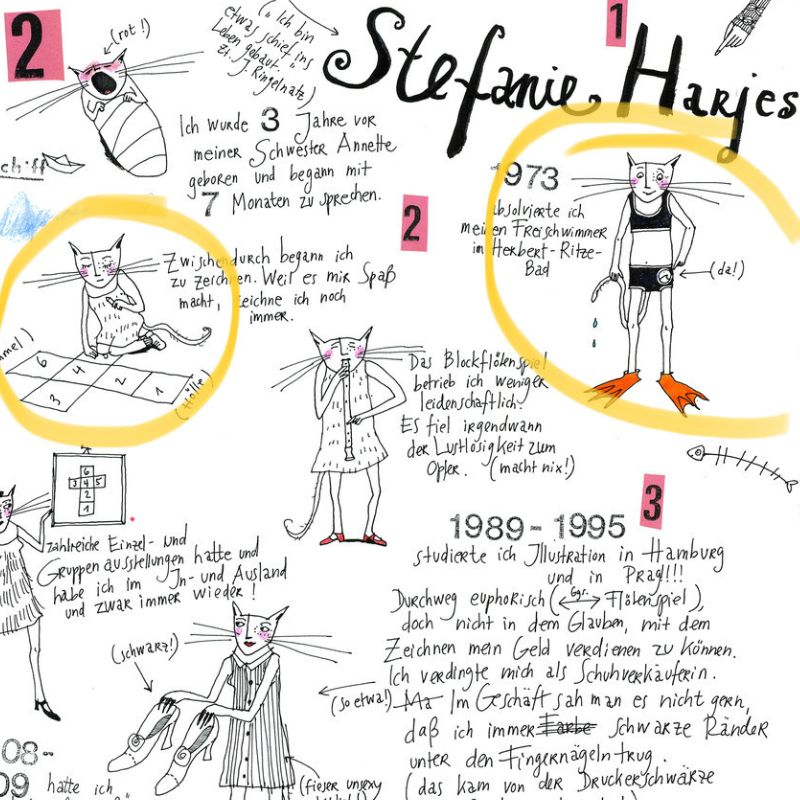 2
(rot!)
("Ich bin
etwas schief ins
Leben gebaut"
zt. J. Ringelnatz)
Stefanie Harjes
1
Ich wurde 3 Jahre vor
meiner Schwester Annette
geboren und begann mit
7 Monaten zu sprechen.
chiff
2
973
absolvierte ich
meinen Freischwimmer
im Herbert-Ritze-
Bad
(da!)
Zwischendurch begann ich
zu zeichnen. Weil es mir Spaß
macht, zeichne ich noch
immer.
mmel)
6
4
2
1
3
(Hölle)
Das Blockflötenspiel
betrieb ich weniger
leidenschaftlich.
Es fiel irgendwann
der Lustlosigkeit zum
Opfer. (macht nix!)
6
3 4 5
2
1
zahlreiche Einzel- und
Gruppenausstellungen hatte und
habe ich im In- und Ausland
und zwar immer wieder!
3
1989-1995
studierte ich Illustration in Hamburg
und in Prag!!!
Durchweg euphorisch (Ggs. Flötenspiel),
doch nicht in dem Glauben, mit dem
Zeichnen mein Geld verdienen zu können.
Ich verdingte mich als Schuhverkäuferin.
(so etwa!) Ma Im Geschäft sah man es nicht gern,
daß ich immer Farbe schwarze Ränder
unter den Fingernägeln trug.
(das kam von der Druckerschwärze
(schwarz!)
08-
09 hatte ich
(fieser unsexy